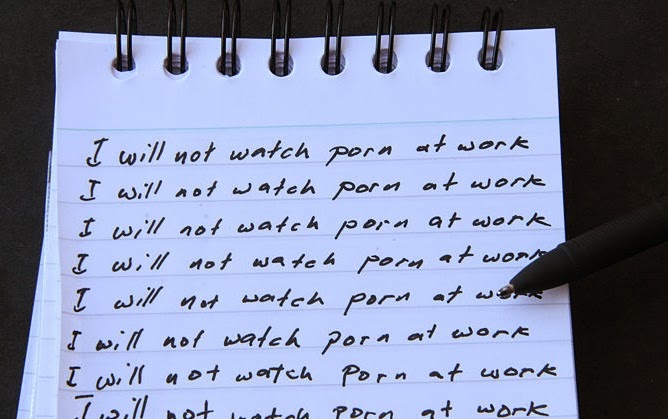 I will not watch porn at work
I will not watch porn at work
I will not watch porn at work
I will not watch porn at work
I will not watch porn at work
I will not watch porn at work
I will not watch Porn at work
I will not watch porn at work